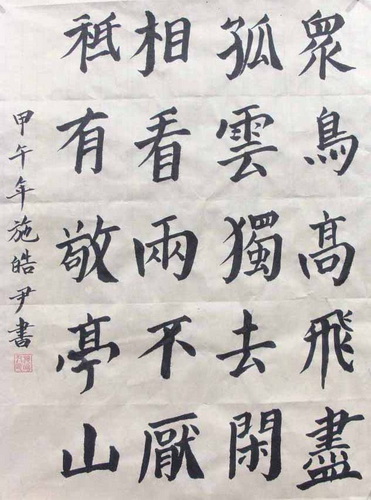 眾鳥高飛盡
孤雲獨去閑
相看兩不厭
秪有敬亭山
甲午年施皓尹書